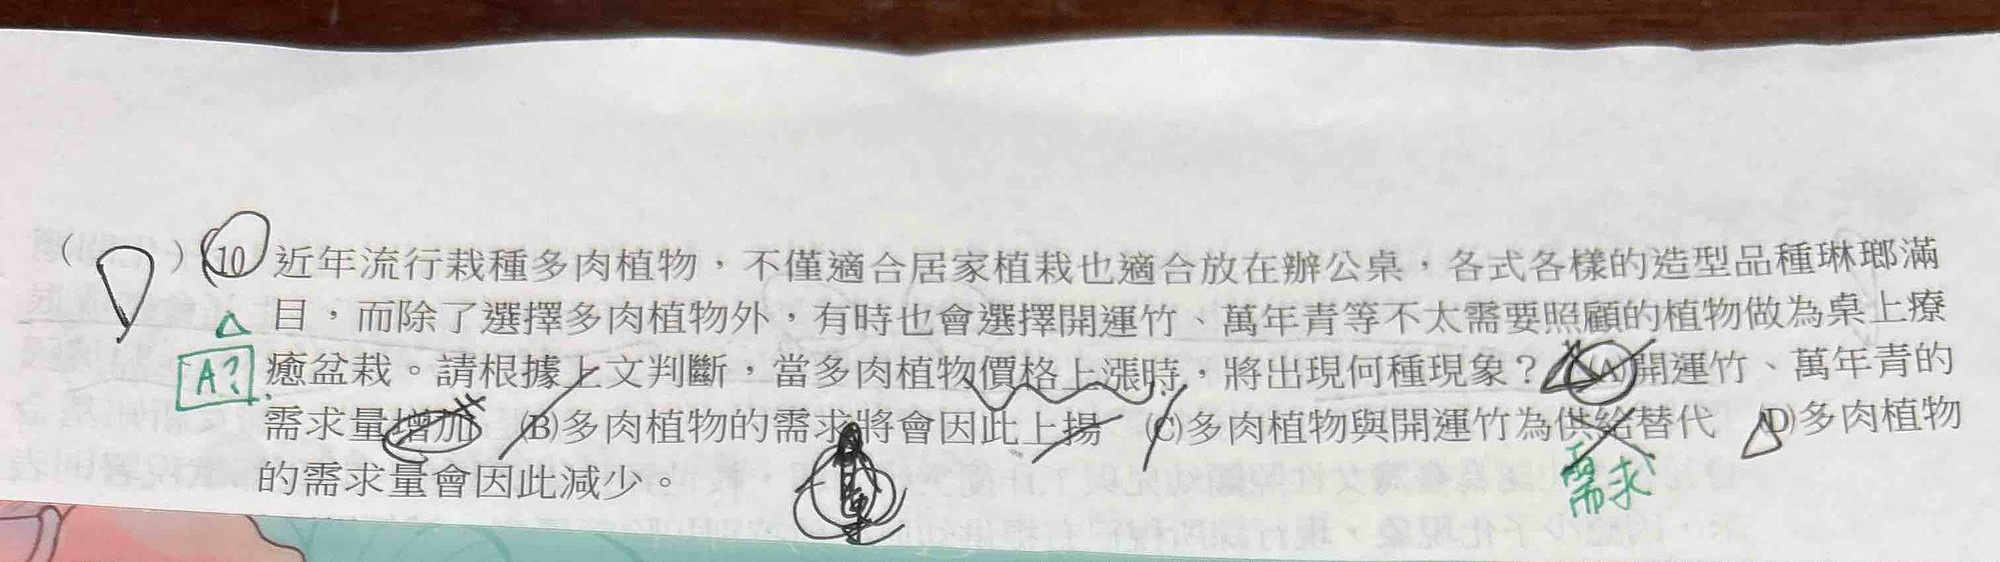 ( D ) 10 近年流行栽種多肉植物，不僅適合居家植栽也適合放在辦公桌，各式各樣的造型品種琳瑯滿
目，而除了選擇多肉植物外，有時也會選擇開運竹、萬年青等不太需要照顧的植物做為桌上療
A? 癒盆栽。請根據上文判斷，當多肉植物價格上漲時，將出現何種現象？(A)開運竹、萬年青的
需求量增加 (B)多肉植物的需求將會因此上揚 (C)多肉植物與開運竹為供給替代 (D)多肉植物
的需求量會因此減少。
量
需求